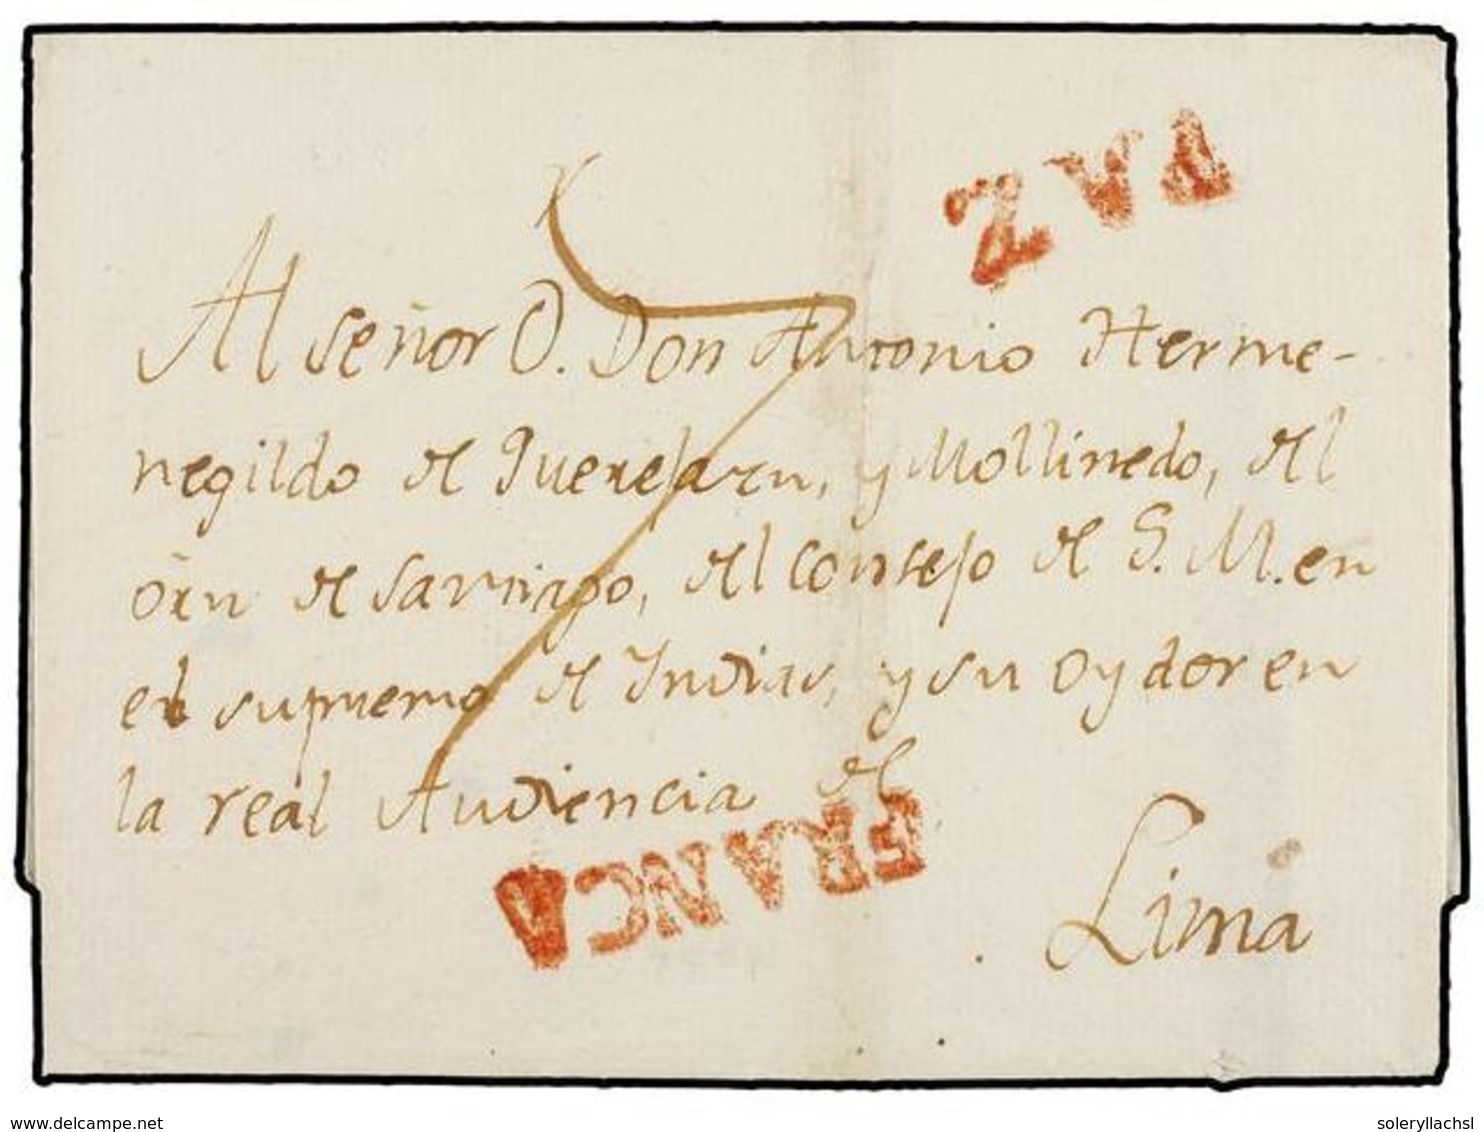 PAZ
Al señor D. Don Antonio Herme-
negildo de Querejazu, y Mollinedo, del
Orn de Santiago, del consejo de S. M. en
el supremo de Indias, y su oydor en
la real Audiencia de
FRANCA
Lima
delcampe.net
soleryllachsl